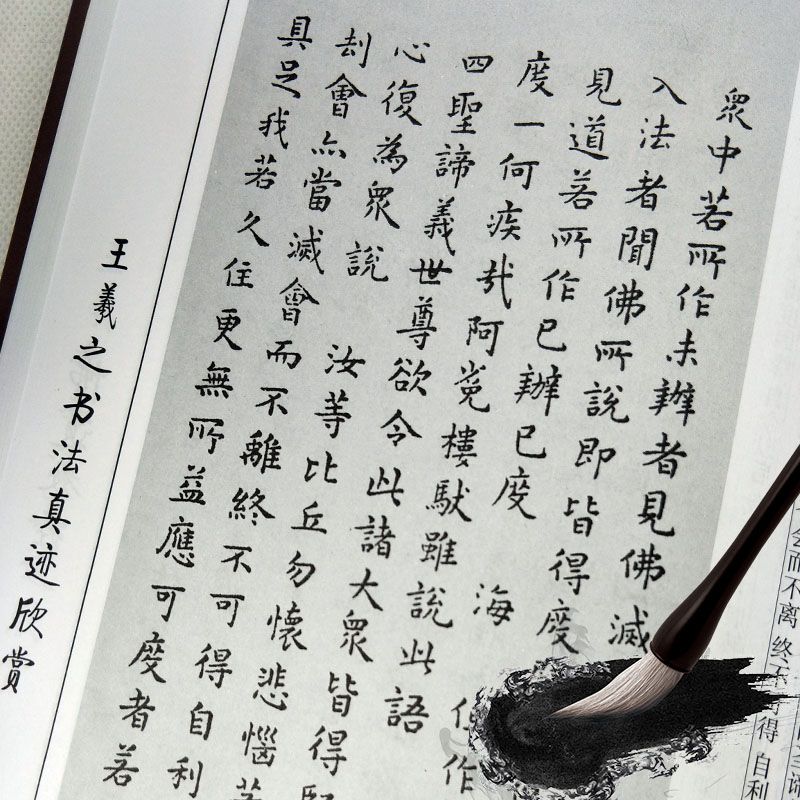 衆中若所作未辦者見佛滅
入法者聞佛所說即皆得度
見道若所作已辦已度 海 作
度一何疾哉阿㝹樓馱雖說此語
四聖諦義世尊欲令此諸大衆皆得
心復為衆說 汝等比丘勿懷悲惱若
劫會亦當滅會而不離終不可得自利
具足我若久住更無所益應可度者若
王羲之书法真迹欣赏
会而不离 终不 得 自利